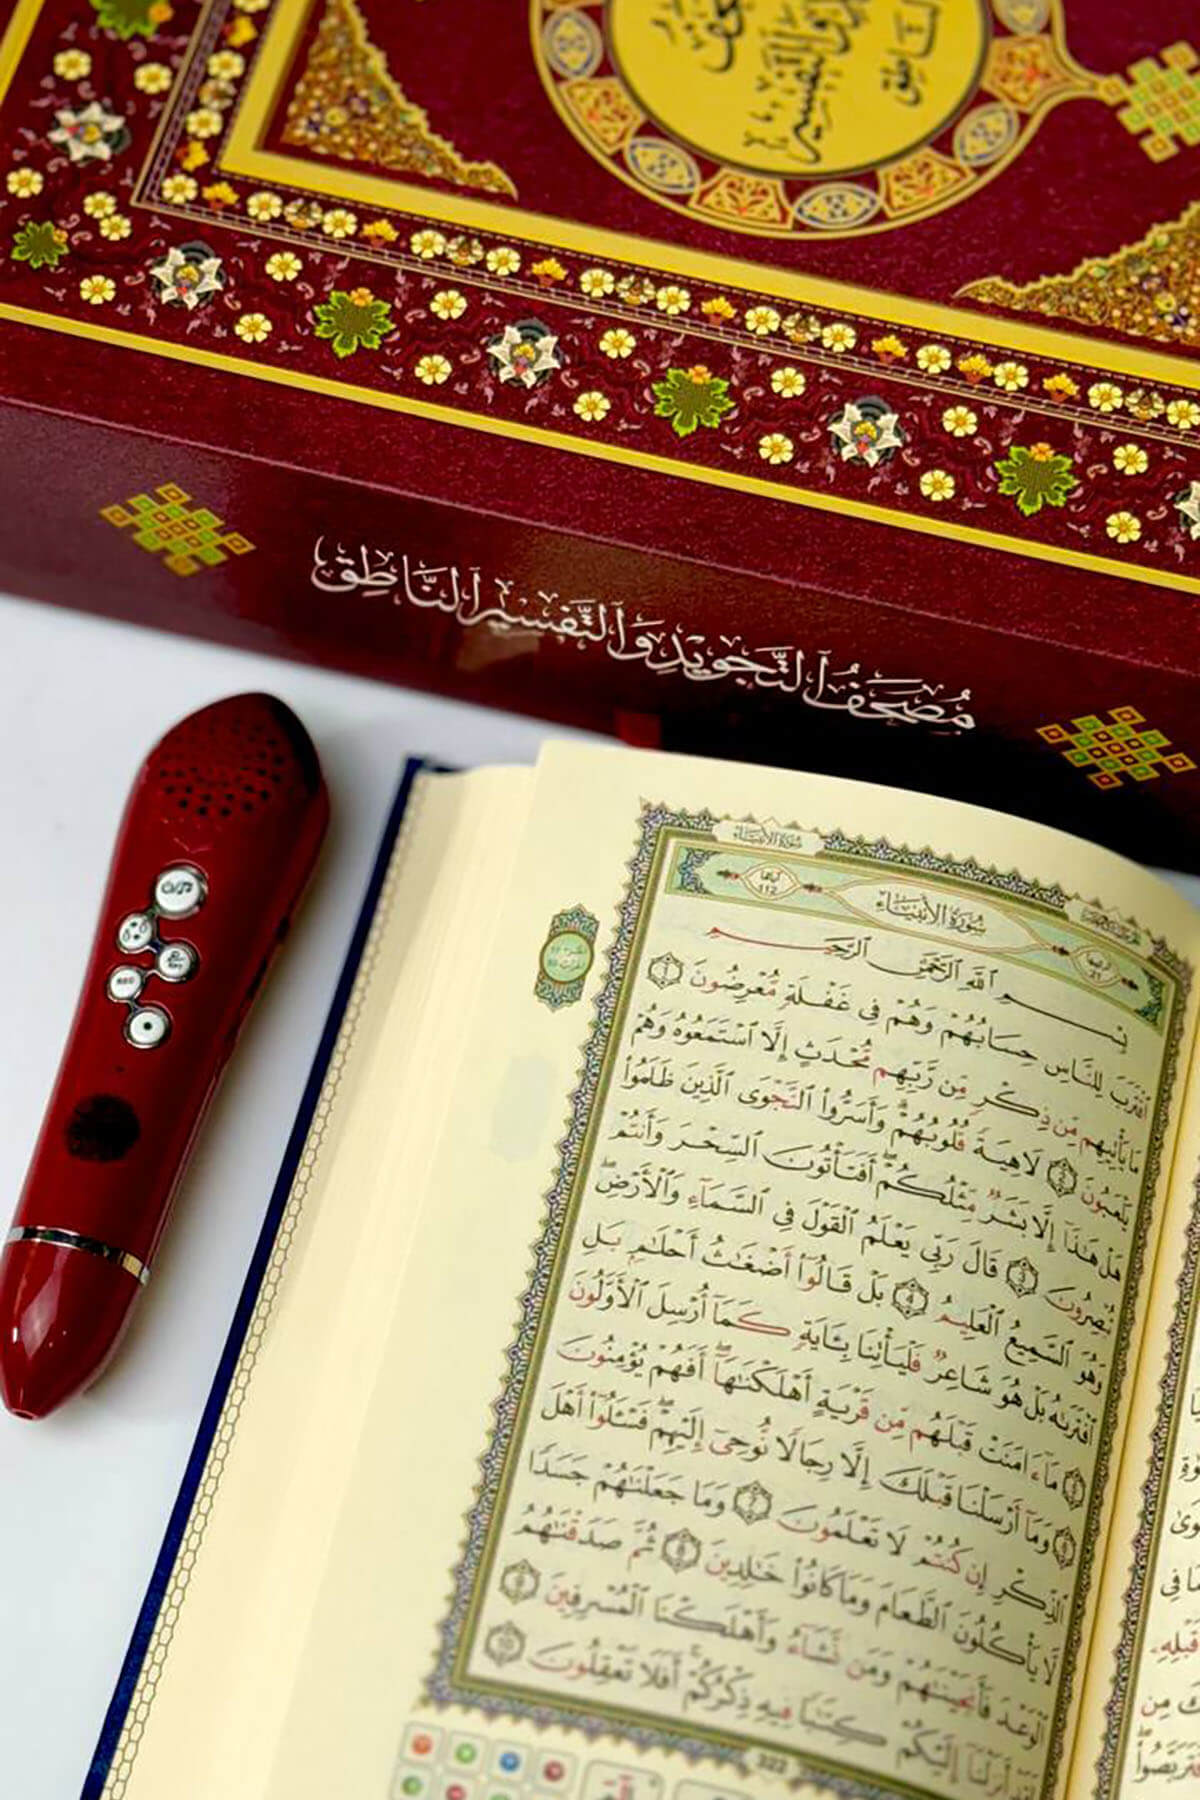 مصحف التجويد والتفسير الناطق
سورة الأنبياء
آياتها 112
سُورَةُ الأَنبِيَاءِ
ترتيبها 21
بِسْمِ ٱللَّهِ ٱلرَّحْمَٰنِ ٱلرَّحِيمِ
ٱقْتَرَبَ لِلنَّاسِ حِسَابُهُمْ وَهُمْ فِى غَفْلَةٍ مُّعْرِضُونَ ١
مَا يَأْتِيهِم مِّن ذِكْرٍ مِّن رَّبِّهِم مُّحْدَثٍ إِلَّا ٱسْتَمَعُوهُ وَهُمْ
يَلْعَبُونَ ٢ لَاهِيَةً قُلُوبُهُمْ ۗ وَأَسَرُّوا۟ ٱلنَّجْوَى ٱلَّذِينَ ظَلَمُوا۟
هَلْ هَٰذَآ إِلَّا بَشَرٌ مِّثْلُكُمْ ۖ أَفَتَأْتُونَ ٱلسِّحْرَ وَأَنتُمْ
تُبْصِرُونَ ٣ قَالَ رَبِّى يَعْلَمُ ٱلْقَوْلَ فِى ٱلسَّمَآءِ وَٱلْأَرْضِ ۖ
وَهُوَ ٱلسَّمِيعُ ٱلْعَلِيمُ ٤ بَلْ قَالُوٓا۟ أَضْغَٰثُ أَحْلَٰمٍۭ بَلِ
ٱفْتَرَىٰهُ بَلْ هُوَ شَاعِرٌ فَلْيَأْتِنَا بِـَٔايَةٍ كَمَآ أُرْسِلَ ٱلْأَوَّلُونَ
٥ مَآ ءَامَنَتْ قَبْلَهُم مِّن قَرْيَةٍ أَهْلَكْنَٰهَآ ۖ أَفَهُمْ يُؤْمِنُونَ
٦ وَمَآ أَرْسَلْنَا قَبْلَكَ إِلَّا رِجَالًا نُّوحِىٓ إِلَيْهِمْ ۖ فَسْـَٔلُوٓا۟ أَهْلَ
ٱلذِّكْرِ إِن كُنتُمْ لَا تَعْلَمُونَ ٧ وَمَا جَعَلْنَٰهُمْ جَسَدًا
لَّا يَأْكُلُونَ ٱلطَّعَامَ وَمَا كَانُوا۟ خَٰلِدِينَ ٨ ثُمَّ صَدَقْنَٰهُمُ
ٱلْوَعْدَ فَأَنجَيْنَٰهُمْ وَمَن نَّشَآءُ وَأَهْلَكْنَا ٱلْمُسْرِفِينَ ٩
لَقَدْ أَنزَلْنَآ إِلَيْكُمْ كِتَٰبًا فِيهِ ذِكْرُكُمْ ۖ أَفَلَا تَعْقِلُونَ ١٠
322